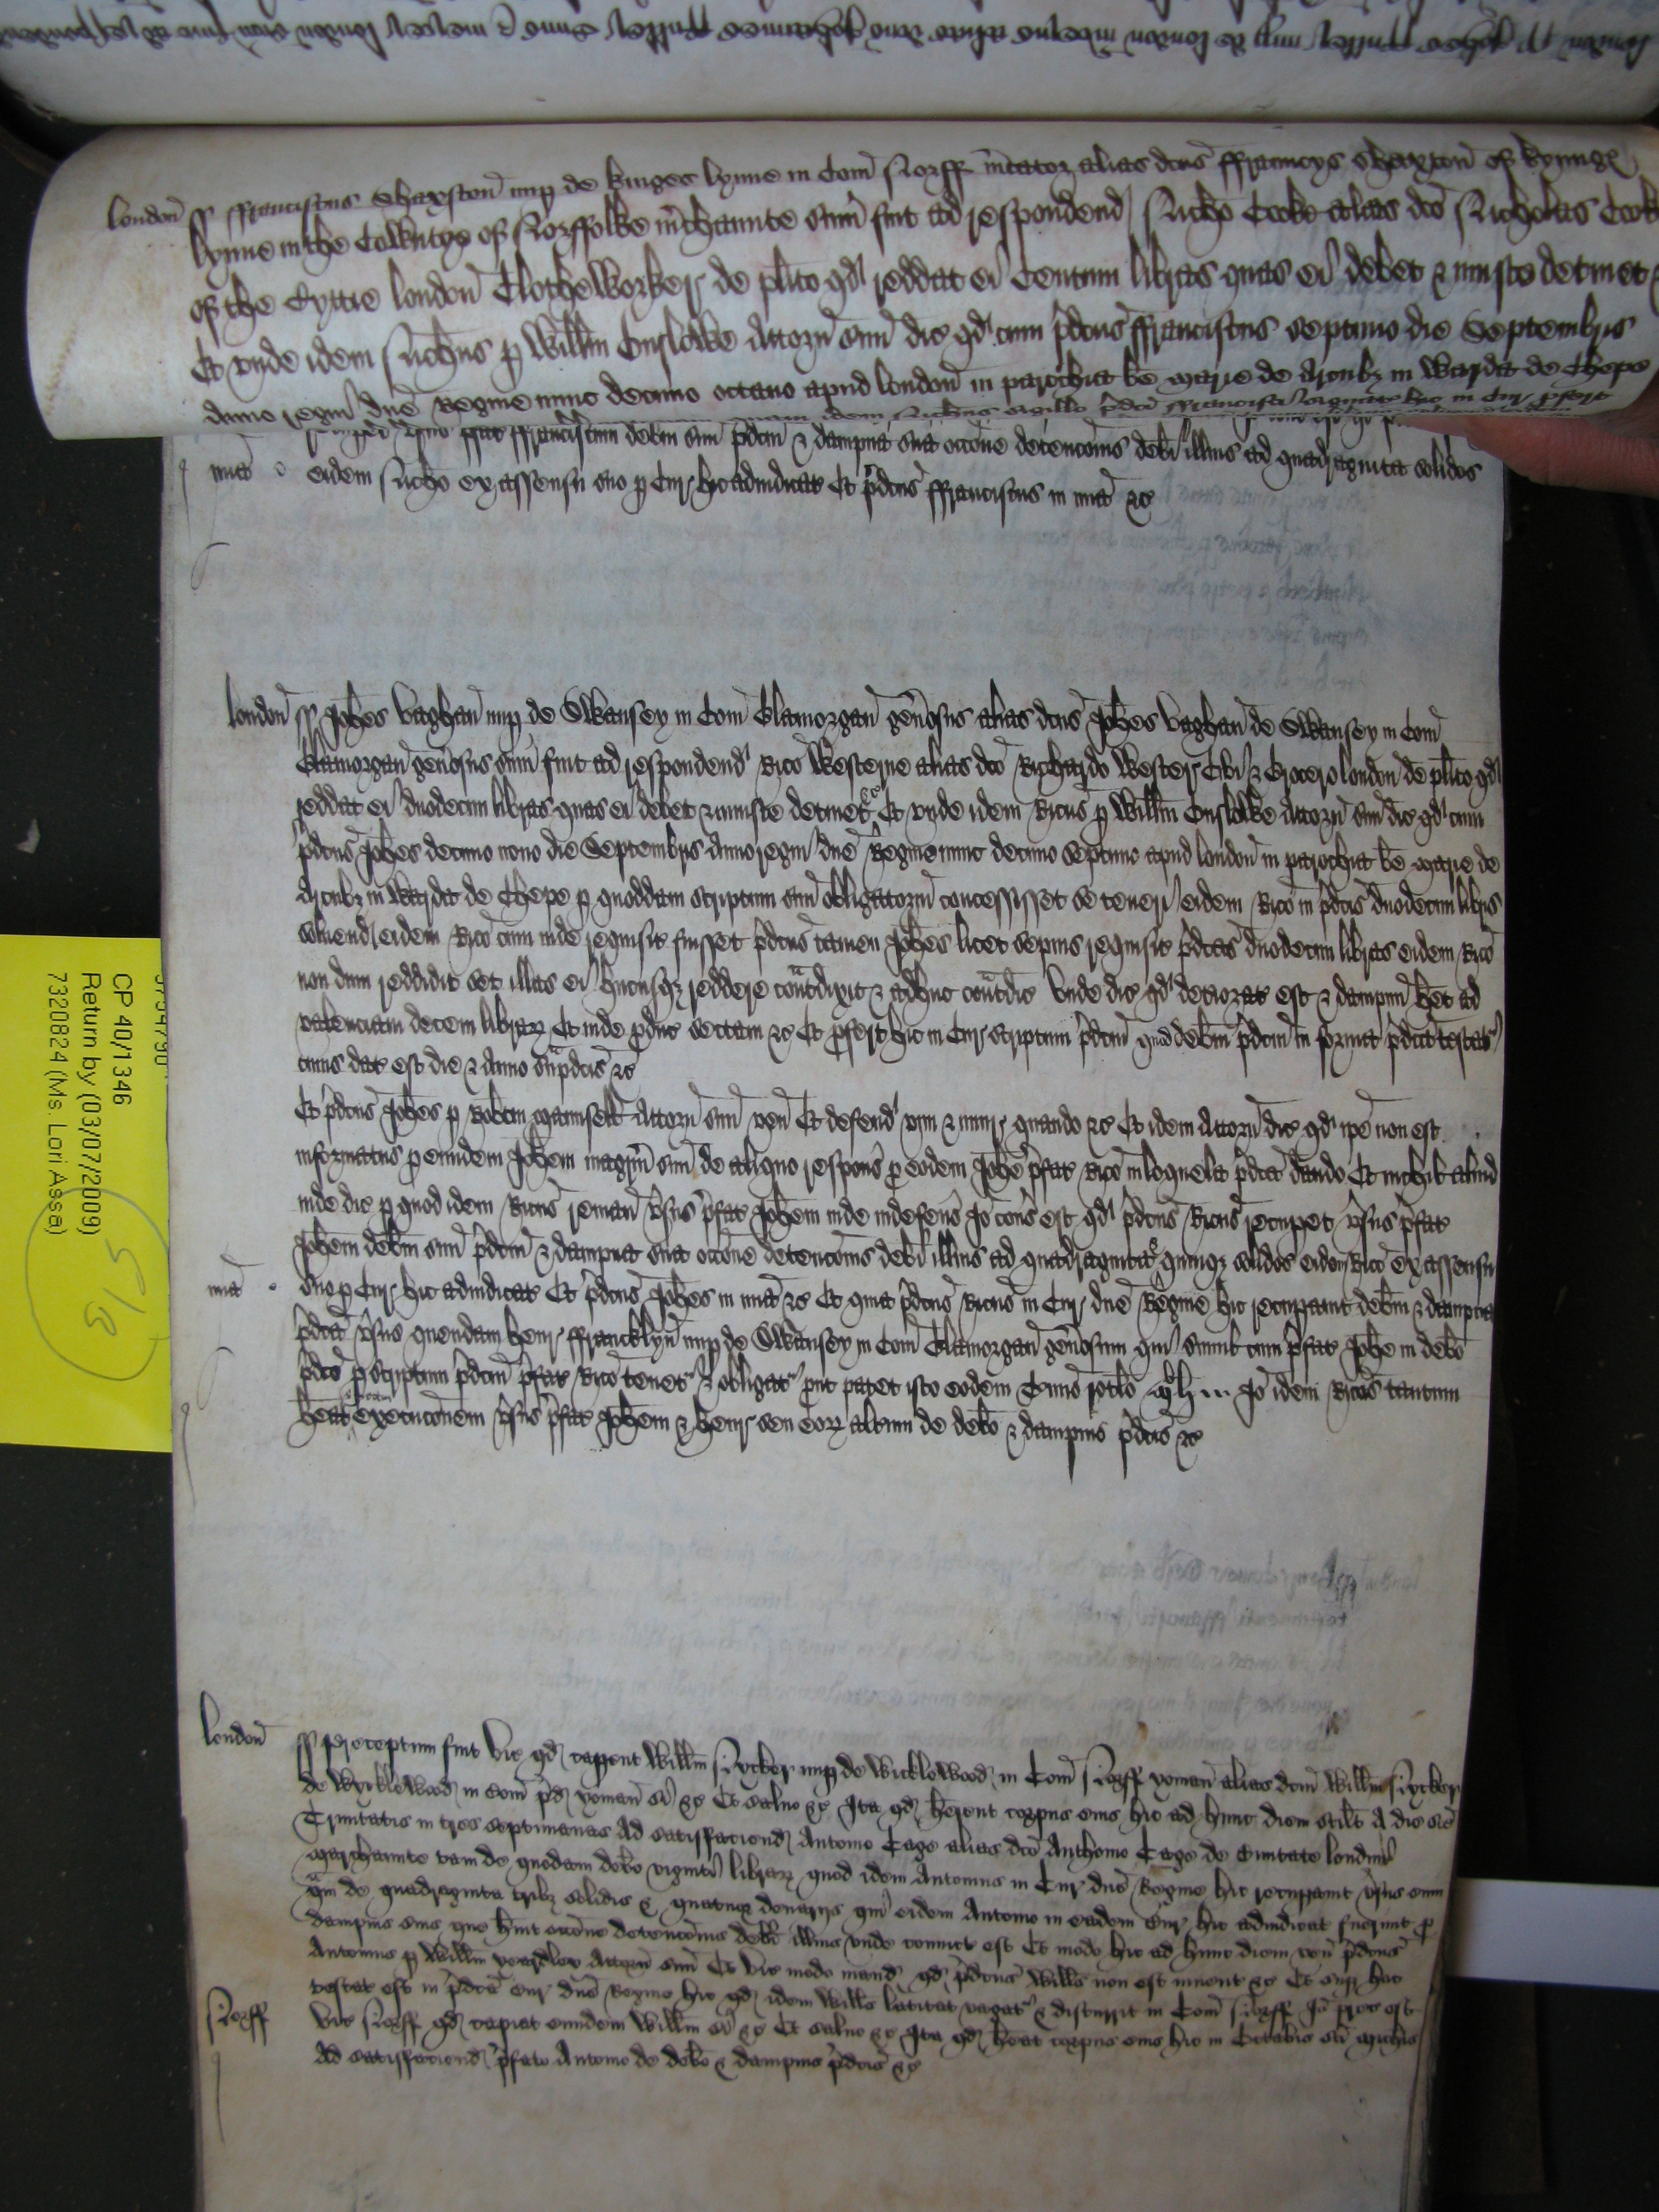 london ss ffranciscus Shaxston nup de Kinges lynne in Com Norff mcator alias dcus ffrauncys Shaxton of Kynngs
lynne in the Cowntye of Norffolke mchaunte sum fuit ad respondend Nicho Cocke alias dco Nicholas Cock
of the Cyttie london Clotheworker de plito qd reddat ei Centum libras quas ei debet & iniuste detinet
Et unde idem Nichus p Willm Onslowe Attorn suu dic qd cum pdcus ffranciscus septimo die Septembris
Anno regni dne Regine nunc decimo octavo apud london in parochia be marie de Arcubz in warda de Chepe
idem Nichus sigillo pdci ffrancisci signat hic in Cur pfert
vsus pfat ffranciscum debm suu pdcm & dampna sua occone detencois debi illius ad quadraginta solidos
mia eidem Nicho ex assensu suo p Cur hic adiudicat Et pdcus ffranciscus in mia &c
london ss Johes Vaghan nup de Swansey in Com Glamorgan genosus alias dcus Johes Vaghan de Swansey in Com
Glamorgan genosus sum fuit ad respondend Rico Westerne alias dco Richardo Wester Civi & Grocero london de plito qd
reddat ei duodecim libras quas ei debet & iniuste detinet &c Et unde idem Ricus p Willm Onslowe Attorn suu dic qd cum
pdcus Johes decimo nono die Septembris Anno regni dne Regine nunc decimo septimo apud london in parochia be marie de
Arcubz in warda de Chepe p quoddam scriptum suu obligatorium concessisset se teneri eidem Rico in pdcis duodecim libris
solvend eidem Rico cum inde requisit fuisset pdcus tamen Johes licet sepius requisit pdcas duodecim libras eidem Rico
non dum reddidit set illas ei hucusqz reddere contradixit & adhuc contradic Unde dic qd deteriorat est & dampnu het ad
valenciam decem librarz Et inde pduc sectam &c Et pfert hic in Cur scriptum pdcm quod debm pdcm in forma pdca testat
cuius dat est die & Anno supdcis &c
Et pdcus Johes p Robtm Maunsell Attorn suu ven Et defend vim & iniur quando &c Et idem Attorn dic qd ipe non est
informatus p eundem Johem magrm suu de aliquo respons p eodem Johe pfat Rico in loquela pdca dando Et nichil aliud
inde dic p quod idem Ricus reman vsus pfat Johem inde indefens Jo cons est qd pdcus Ricus recupet vsus pfat
Johem debm suu pdcm & dampna sua occone detencois debi illius ad quadraginta & quinqz solidos eidem Rico ex assensu
mia suo p Cur hic adiudicat Et pdcus Johes in mia &c Et quia pdcus Ricus in Cur dne Regine hic recupavit debm & dampna
pdca vsus quendam henr ffrancklyn nup de Swansey in Com Glamorgan genosum qui simul cum pfat Johe in debo
pdco p scriptum pdcm pfat Rico tenet & obligat put patet isto eodem Tmino rotlo Jo idem Ricus tantum
heat execucoem vsus pfat Johem & henr seu eorz altum de debo & dampnis pdcis &c
london ss Preceptum fuit Vic qd capent Willm Rycker nup de Wicklewood in Com Norff yoman alias dcm Willm Rycker
de Wycklewood in Com pd yoman si &c Et salvo &c Ita qd herent corpus eius hic ad hunc diem scilt A die sce
Trinitatis in tres septimanas Ad satisfaciend Antonio Cage alias dco Anthonio Cage de Civitate london
marchaunte tam de quodam debo viginti librarz quod idem Antonius in Cur dne Regine hic recupavit vsus eum
qam de quadraginta tribz solidis & quatuor denariis qui eidem Antonio in eadem Cur hic adiudicat fuerunt p
dampnis suis que huit occone detencois debi illius unde convict est Et modo hic ad hunc diem ven pdcus
Antonius p Willm yeardley Attorn suu Et Vic modo mand qd pdcus Willms non est invent &c Et sup hoc
testat est in pdca Cur dne Regine hic qd idem Willms latitat vagat & discurrit in Com Norff Jo prec est
Norff Vic Norff qd capiat eundem Willm si &c Et salvo &c Ita qd heat corpus eius hic in Octabis sci Michis
Ad satisfaciend pfato Antonio de debo & dampnis pdcis &c
CP 40/1346
Return by (03/07/2009)
7320824 (Ms. Lori Asse)